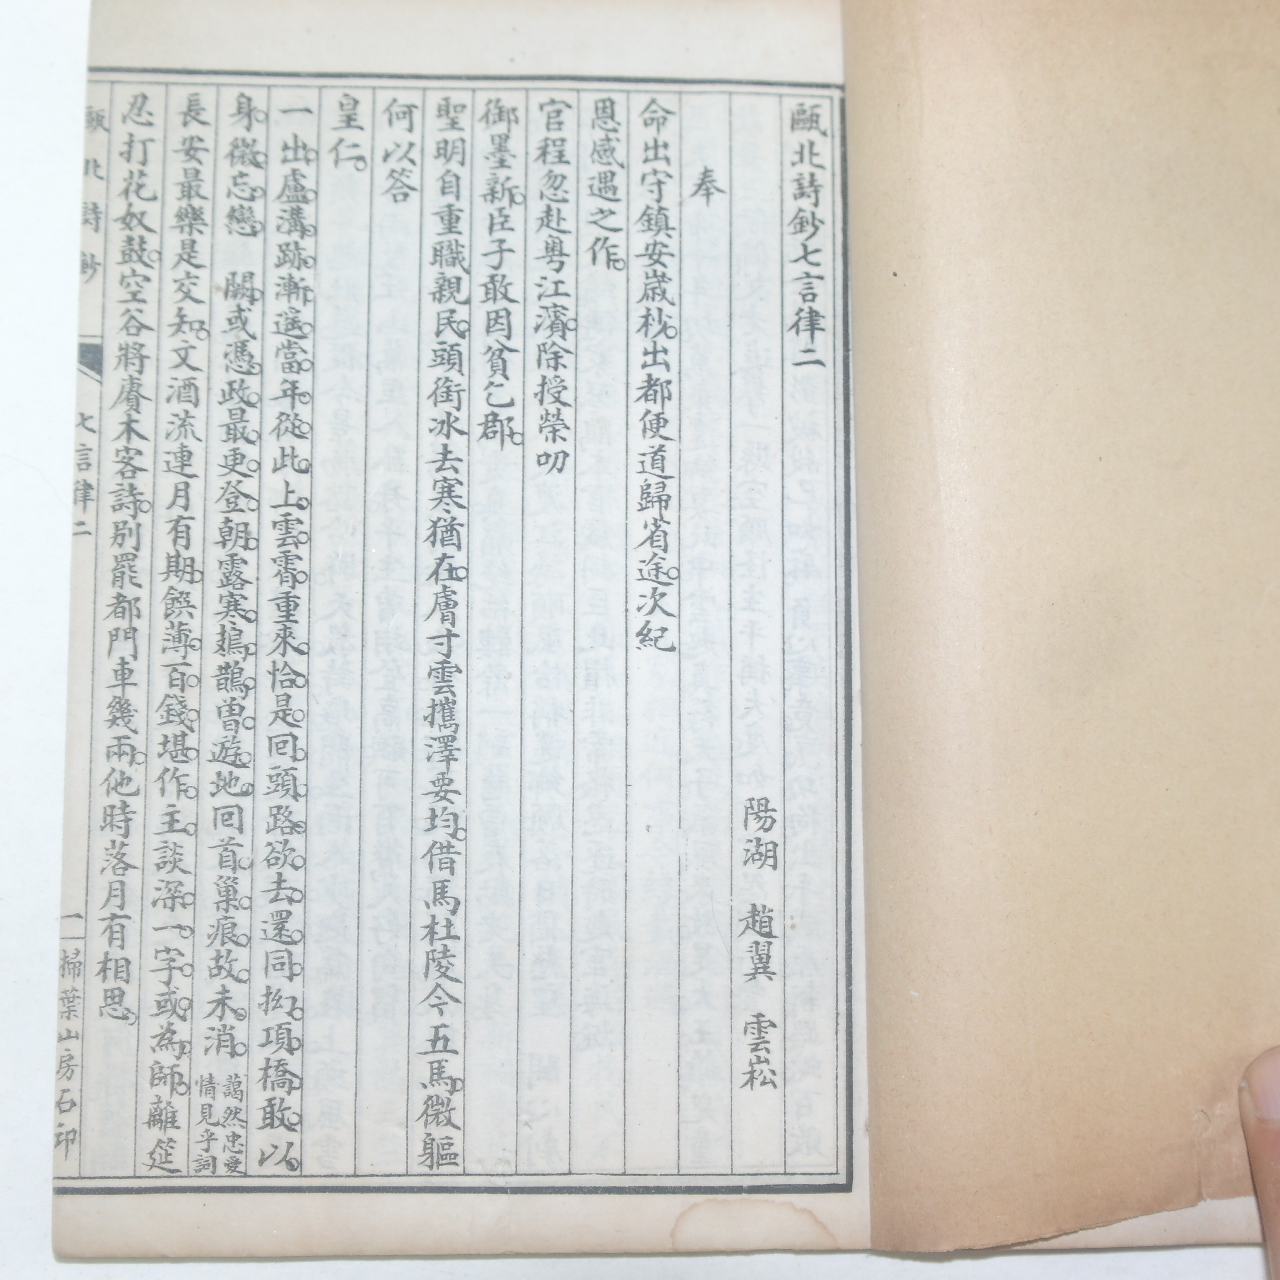 甌北詩鈔七言律二
陽湖 趙翼 雲崧
奉
命出守鎮安歲杪出都便道歸省途次紀
恩感遇之作
官程忽赴粤江濱除授榮叨
御墨新臣子敢因貧乞郡
聖明自重職親民頭銜冰去寒猶在膚寸雲攜澤要均借馬杜陵今五馬微軀
何以答
皇仁
一出盧溝跡漸遥當年從此上雲霄重來恰是回頭路欲去還同拗項橋敢以
身微忘戀 闕或憑政最更登朝露寒鳷鵲曾遊地回首巢痕故未消 藹然忠愛情見乎詞
長安最樂是交知文酒流連月有期饌薄百錢堪作主談深一字或為師離筵
忍打花奴鼓空谷將賡木客詩別罷都門車幾兩他時落月有相思
甌北詩鈔 七言律二 一 掃葉山房石印